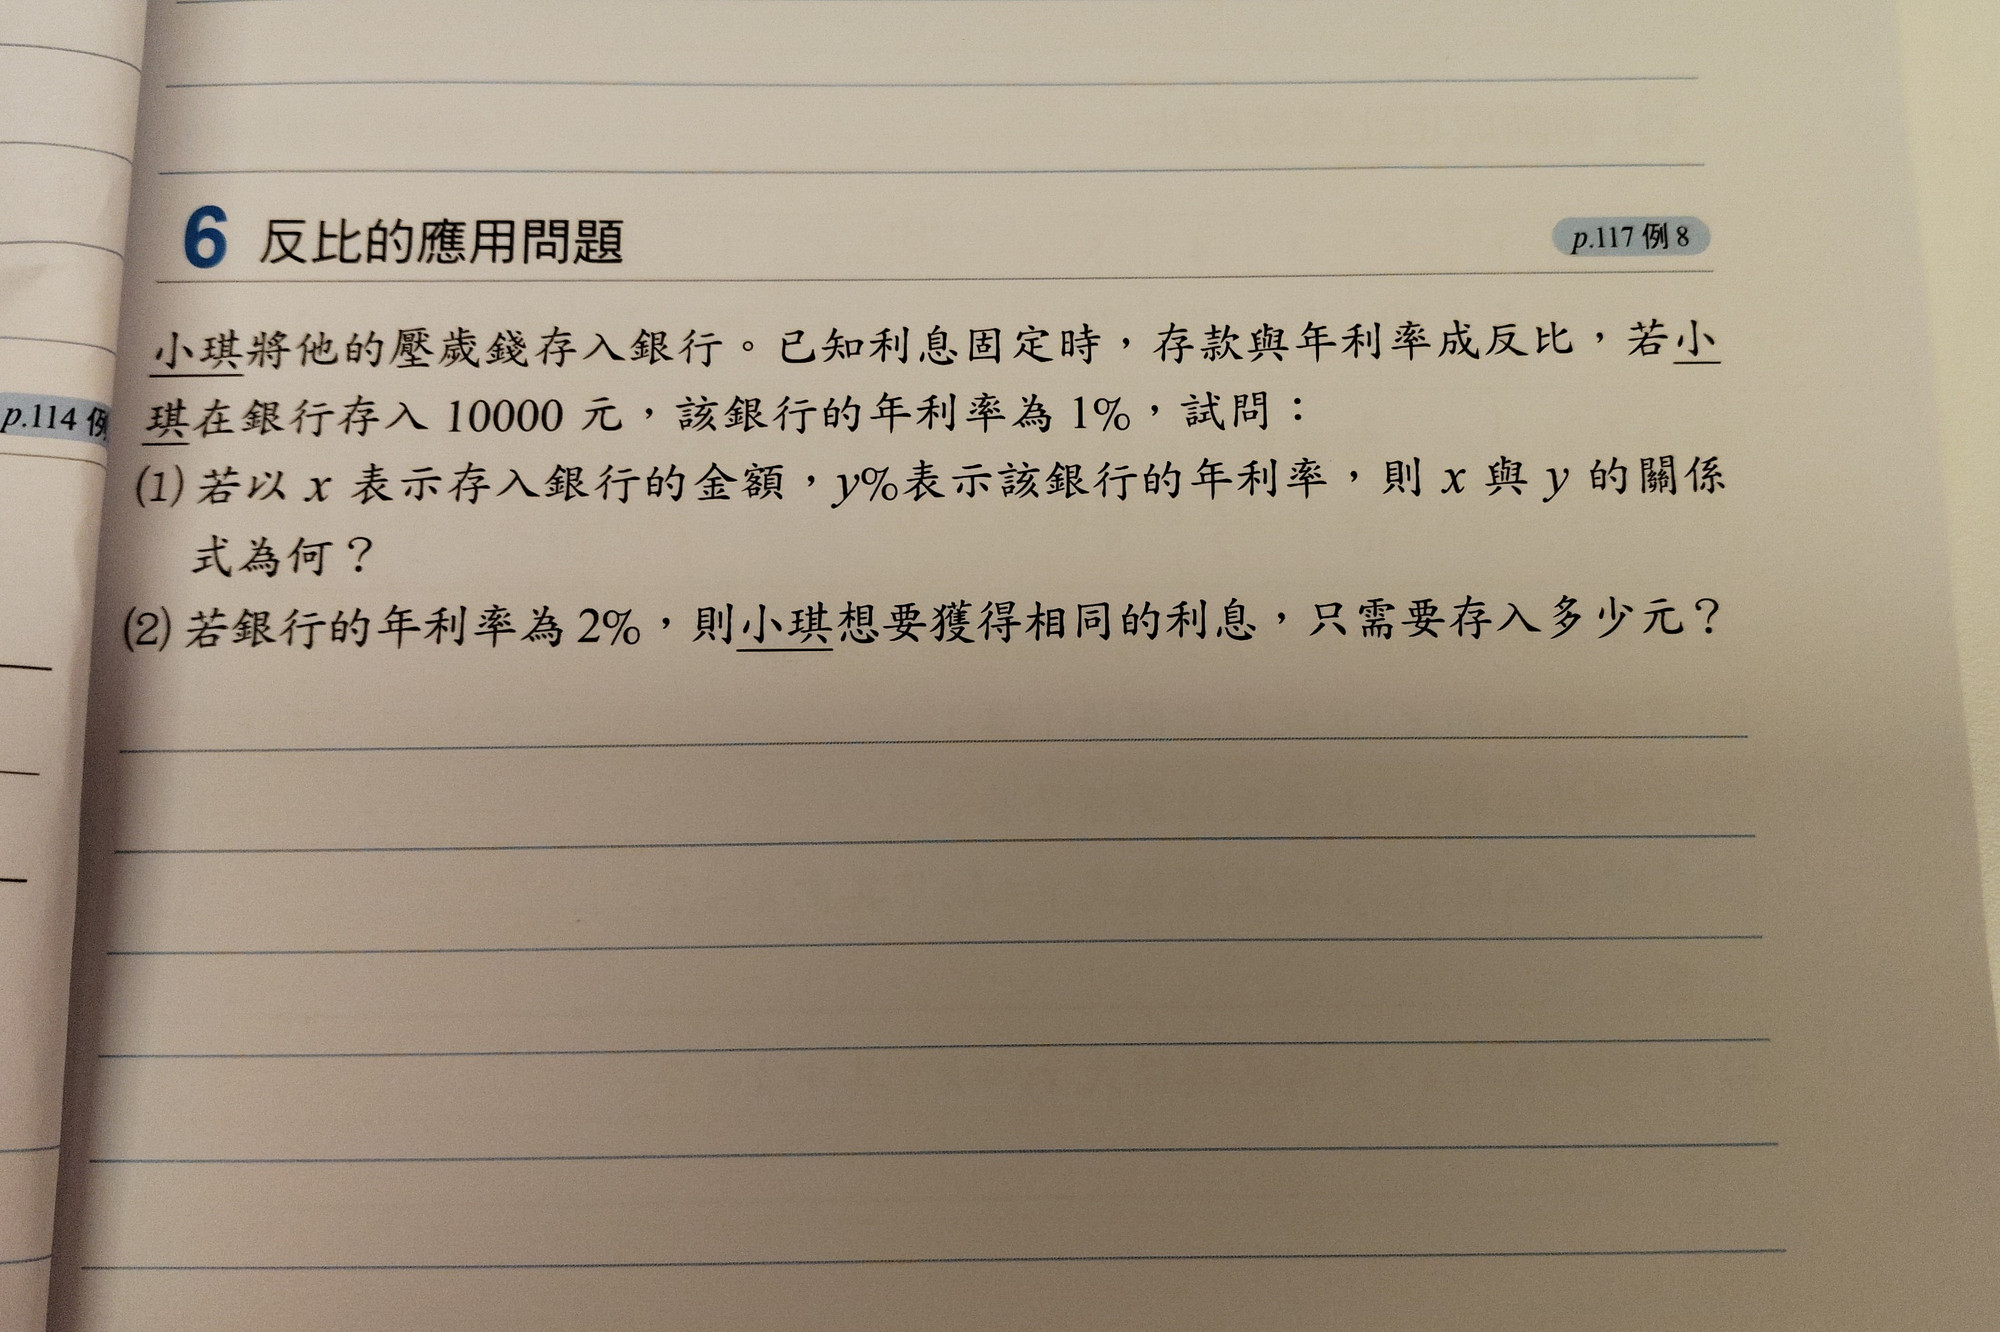 6 反比的應用問題 p.117 例 8
小琪將他的壓歲錢存入銀行。已知利息固定時,存款與年利率成反比,若小
琪在銀行存入 10000 元,該銀行的年利率為 1%,試問:
(1) 若以 x 表示存入銀行的金額,y%表示該銀行的年利率,則 x 與 y 的關係
式為何?
(2) 若銀行的年利率為 2%,則小琪想要獲得相同的利息,只需要存入多少元?
p.114 例